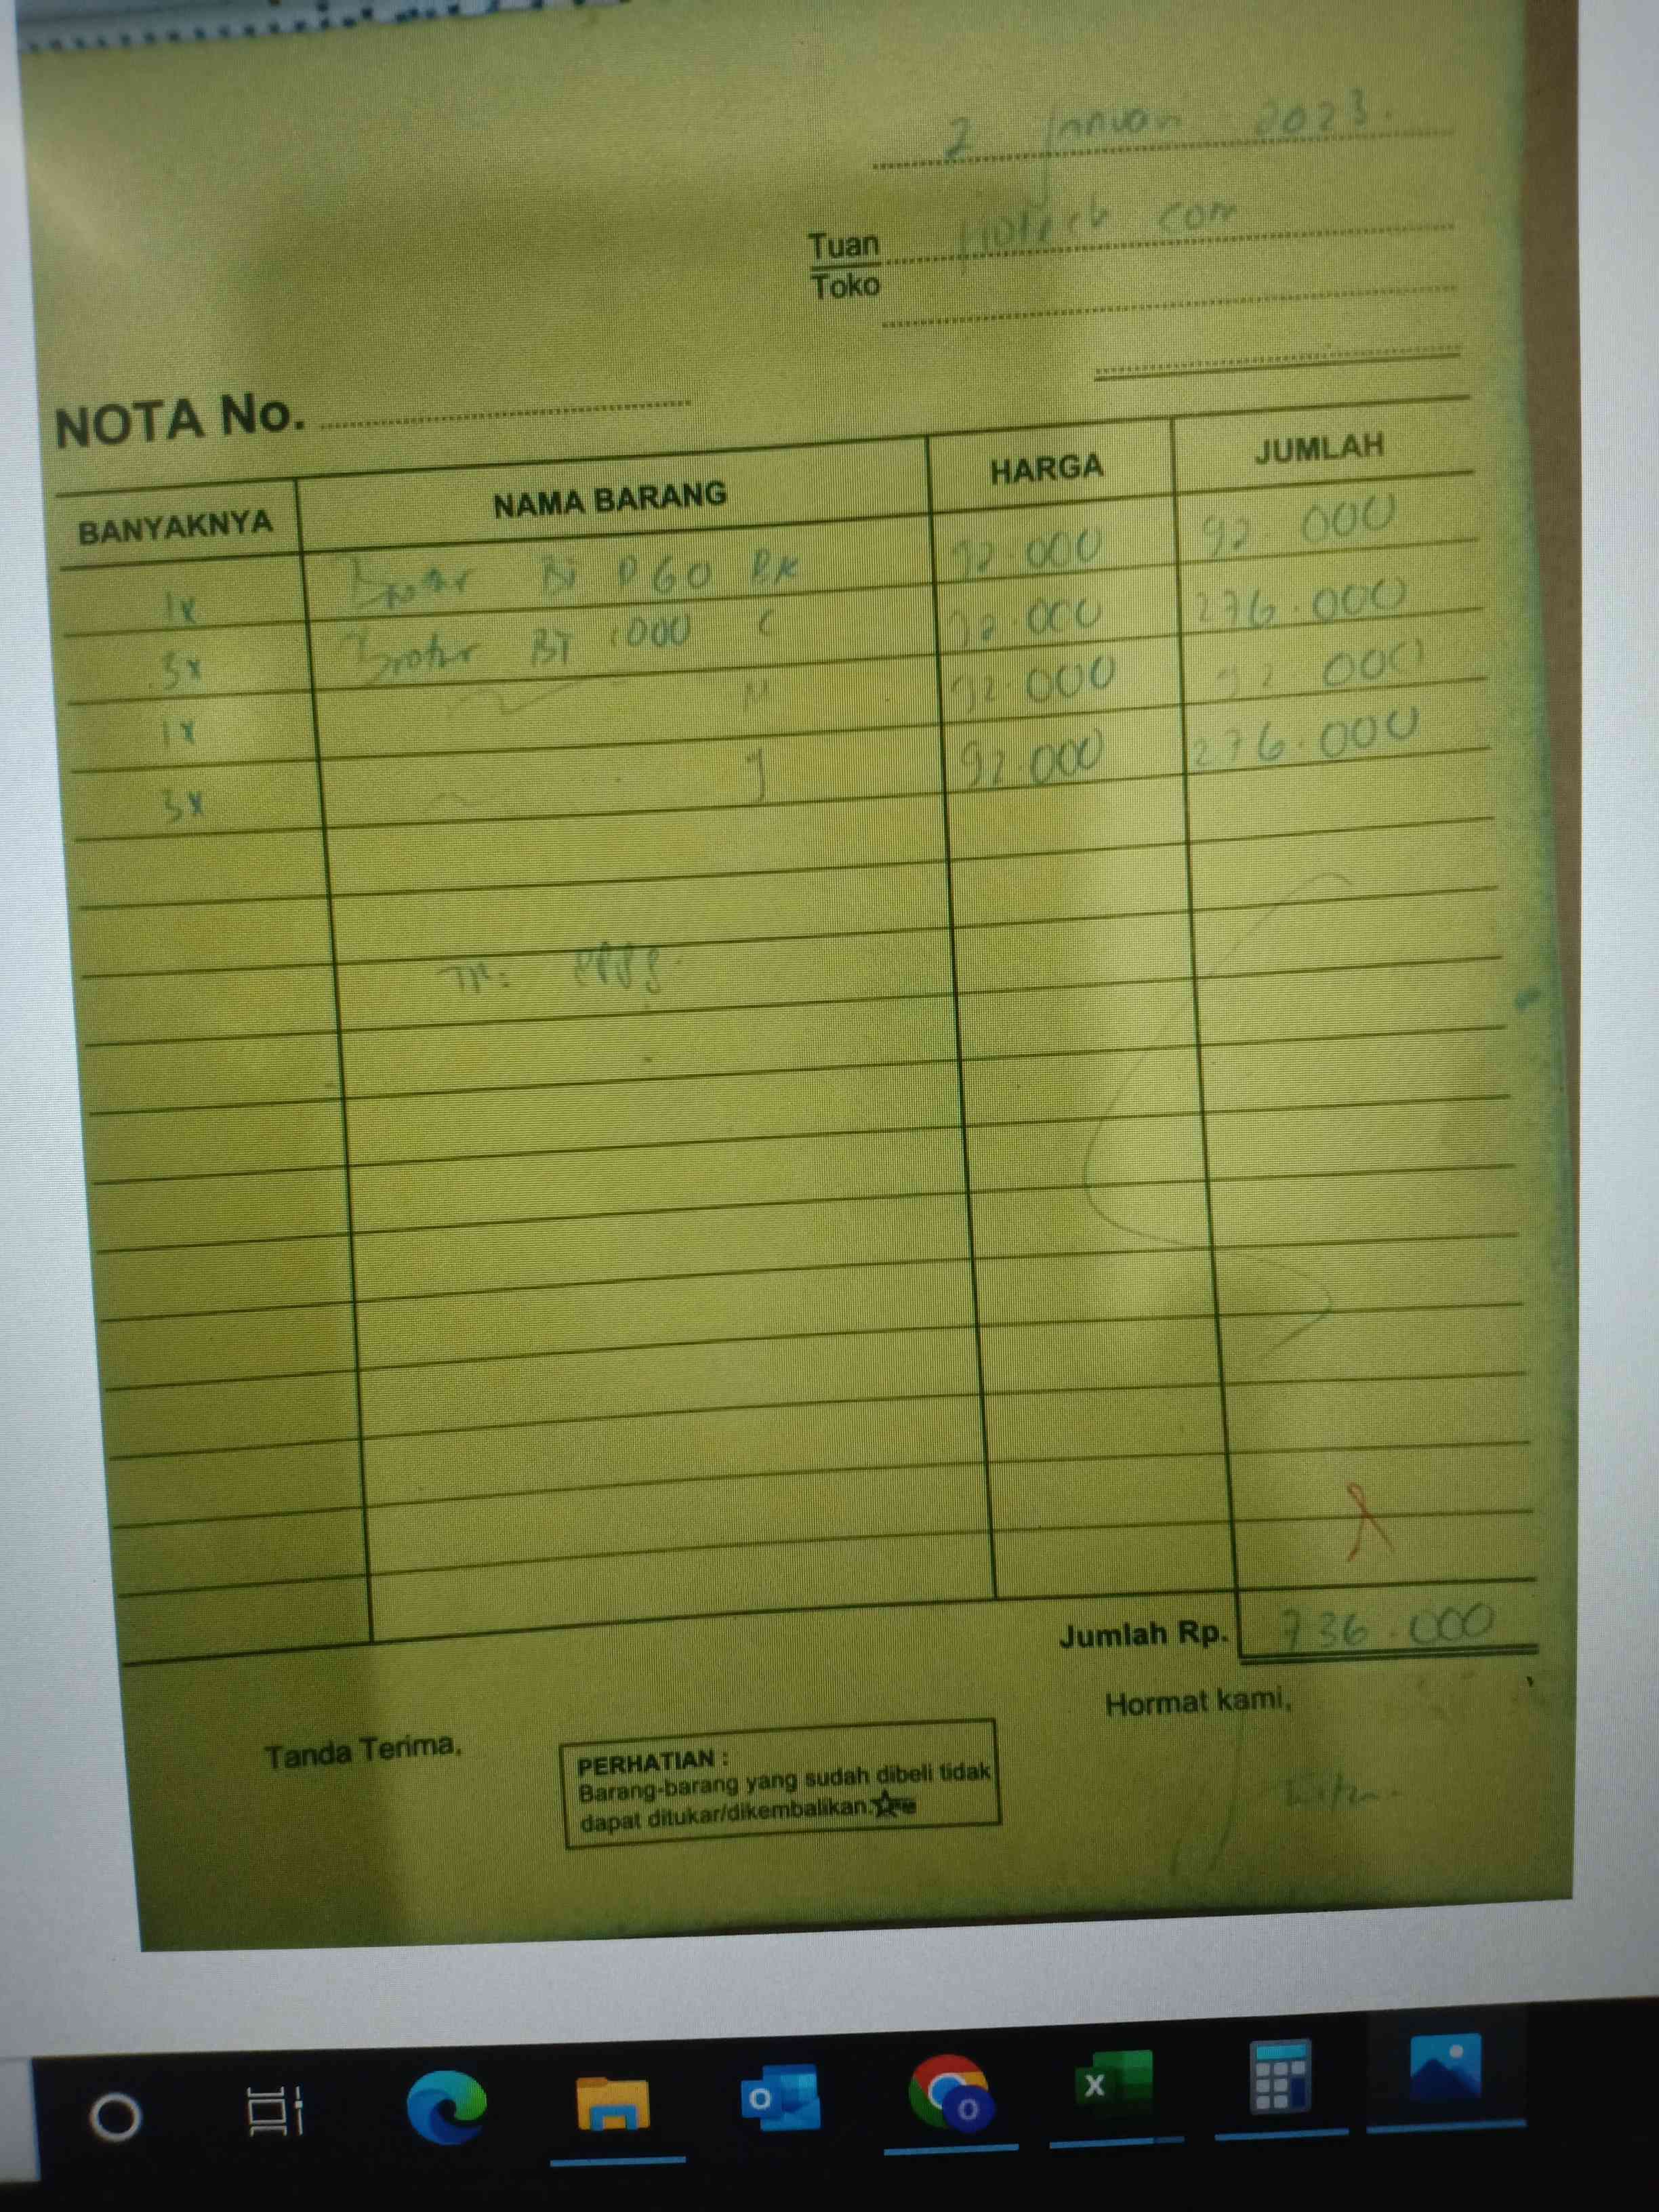 2 Januari 2023.
Tuan com
Toko
NOTA No.
BANYAKNYA NAMA BARANG HARGA JUMLAH
1x Brother D60 BK 92.000 92.000
3x Brother BT 000 C 92.000 276.000
1x M 92.000 92.000
3x y 92.000 276.000
Jumlah Rp. 736.000
Tanda Terima,
Hormat kami,
PERHATIAN :
Barang-barang yang sudah dibeli tidak
dapat ditukar/dikembalikan.